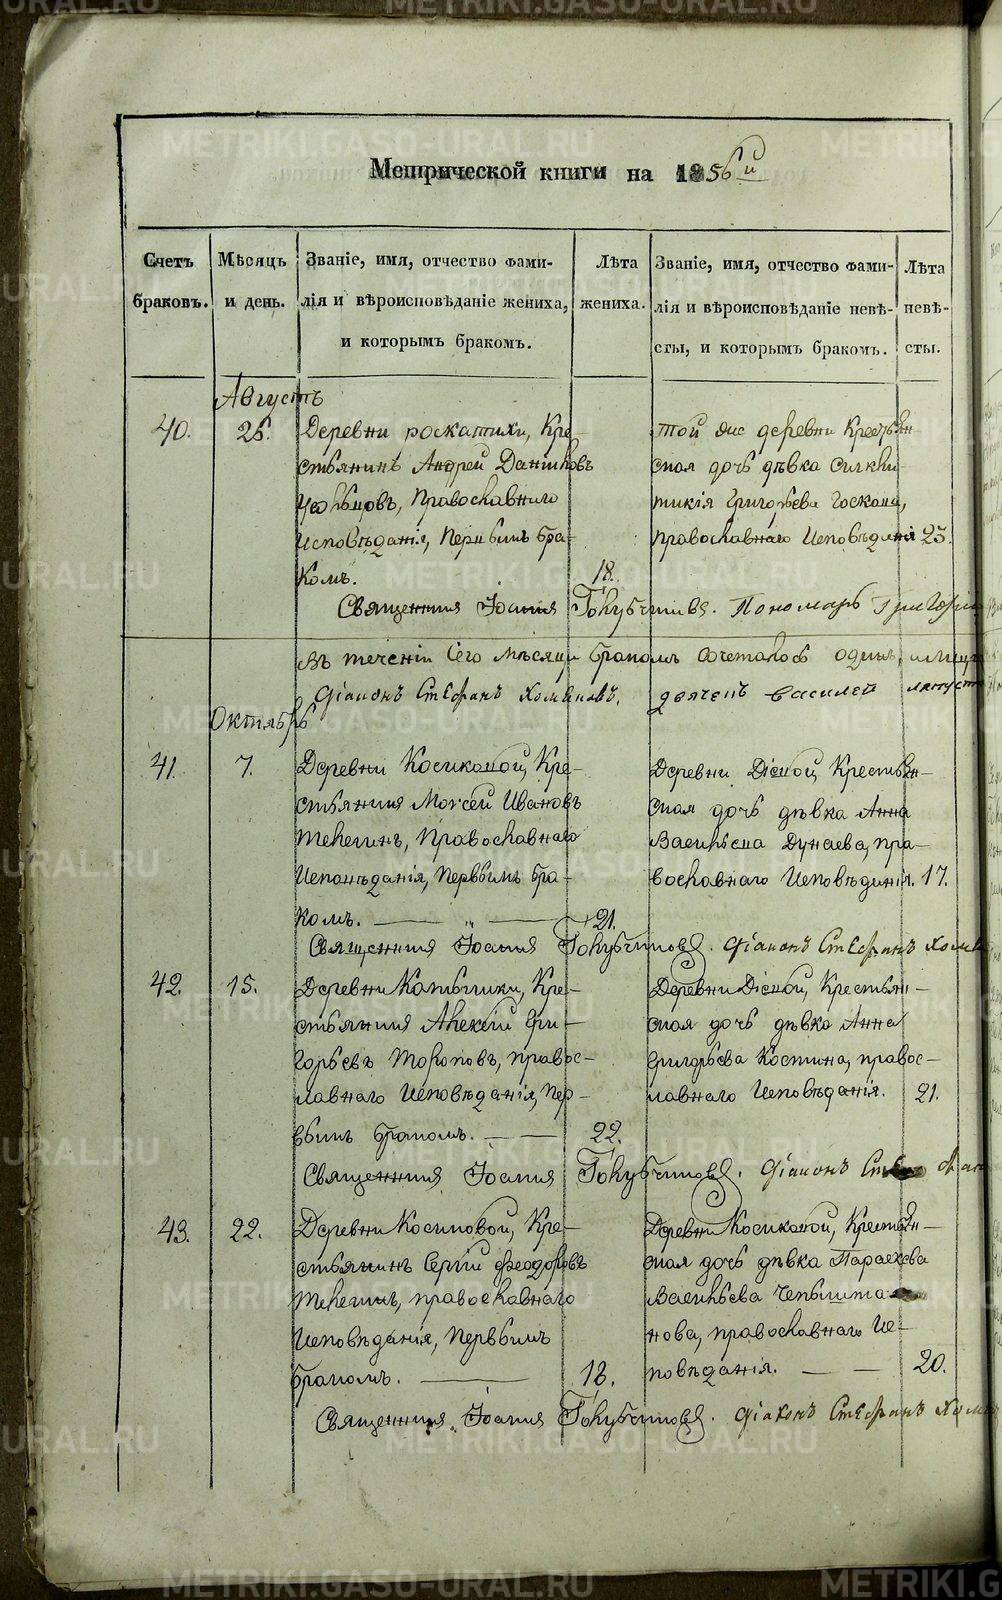 Метрической книги на 1856й
Счетъ браковъ.
Мѣсяцъ и день.
Званіе, имя, отчество фами-
лія и вѣроисповѣданіе жениха,
и которымъ бракомъ.
Лѣта жениха.
Званіе, имя, отчество фами-
лія и вѣроисповѣданіе невѣ-
сты, и которымъ бракомъ.
Лѣта невѣ-
сты.
Августъ
40. 26. Деревни роскатихи, Кре-
стьянинъ Андрей Даниловъ
Православнаго
исповѣданія, Первымъ бра-
комъ. 18.
той же деревни Крестьян-
ская дочь дѣвка
Григорьева
православнаго Исповѣданія 25.
Священникъ Іоаннъ Голубчиковъ. Пономарь Григорій
въ теченіи сего мѣсяца бракомъ сочеталось одинъ,
Діаконъ Стефанъ Хомяковъ. дьячекъ Василей
Октябрь
41. 7. Деревни Косиковой, Кре-
стьянинъ Моѵсей Ивановъ
Телегинъ, Православнаго
Исповѣданія, Первымъ бра-
комъ. — „ — 21.
Деревни Діевой, Крестьян-
ская дочь дѣвка Анна
Васильева Дунаева, пра-
вославнаго Исповѣданія. 17.
Священникъ Іоаннъ Голубчиковъ. Діаконъ Стефанъ
42. 15. Деревни Катышки, Кре-
стьянинъ Алексій Гри-
горьевъ Токоповъ, правос-
лавнаго Исповѣданія, Пер-
вымъ бракомъ. — — 22.
Деревни Діевой, Крестьян-
ская дочь дѣвка Анна
Григорьева Костина, правос-
лавнаго Исповѣданія. 21.
Священникъ Іоаннъ Голубчиковъ. Діаконъ
43. 22. Деревни Косиковой, Кре-
стьянинъ Сергій Феодоровъ
Телегинъ, православнаго
Исповѣданія, Первымъ
бракомъ. — 18.
Деревни Косиковой, Крестьян-
ская дочь дѣвка Параскева
Васильева Чепышта-
нова, православнаго Ис-
повѣданія. — — 20.
Священникъ Іоаннъ Голубчиковъ. Діаконъ Стефанъ
METRIKI.GASO-URAL.RU